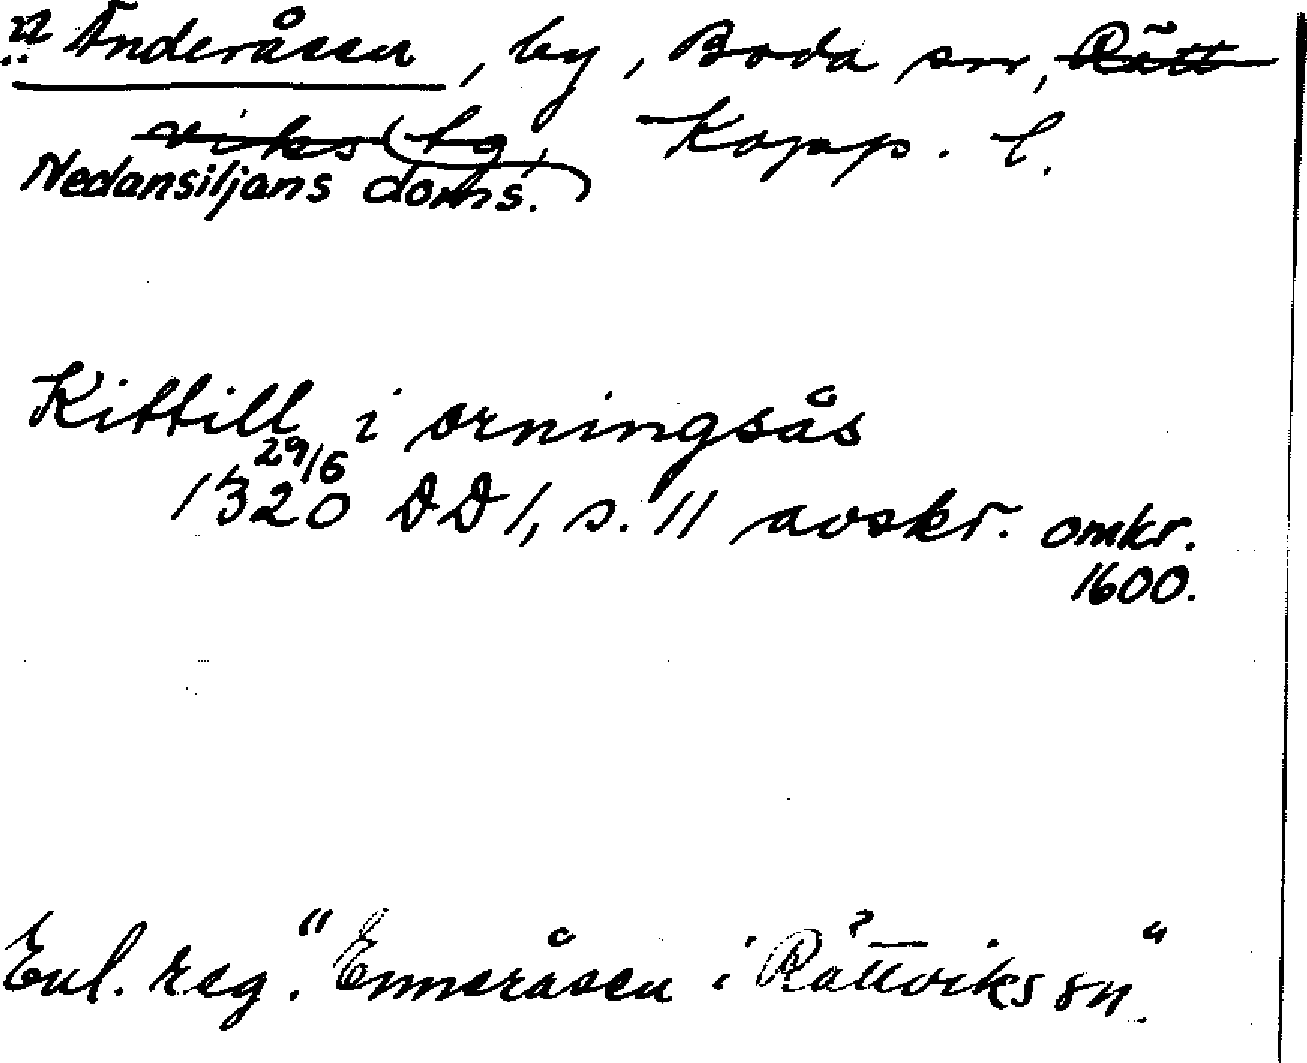 Änderåsen, by, Boda sn, Rätt
viks tg, Kopp. l.
Nedansiljans doms.
Kittill i orningsås
29/6
1320 DD 1, s. 11 avskr. omkr.
1600.
Enl. reg. "Enneråsen i Rättviks sn."